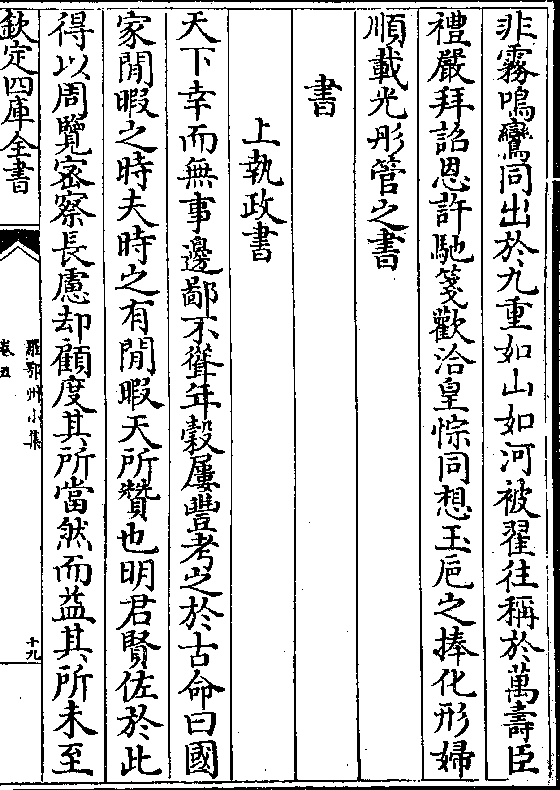 非霧鳴鸞同出於九重如山如河被翟往稱於萬壽臣
禮嚴拜詔恩許馳箋歡洽皇悰同想玉巵之捧化形婦
順載光彤管之書
書
上執政書
天下幸而無事邊鄙不聳年榖屢豐考之於古命曰國
家閒暇之時夫時之有閒暇天所贊也明君賢佐於此
得以周覽宻察長慮却顧度其所當然而益其所未至
欽定四庫全書
羅鄂州小集
卷五
十九